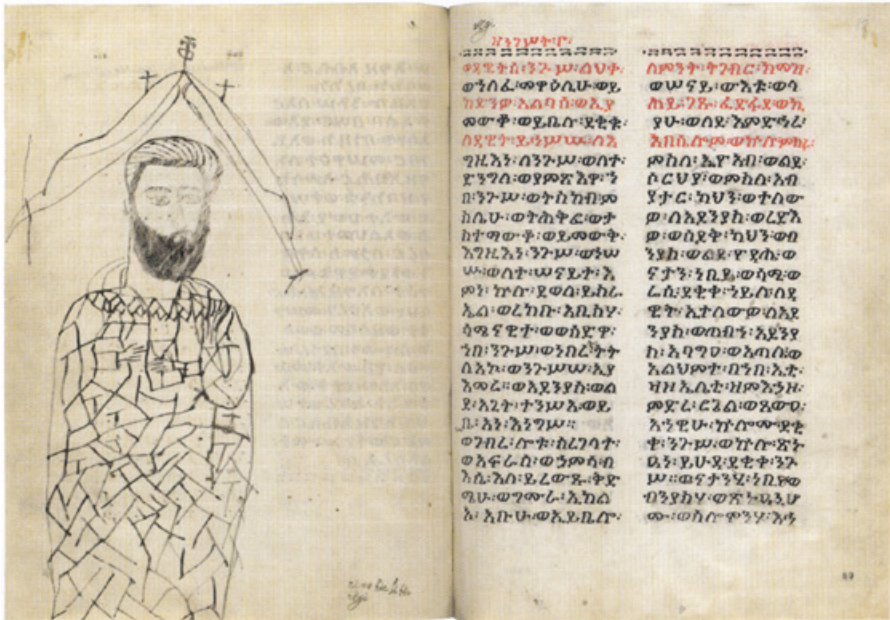 ዘነገሥት፡፫፡
ወዳዊትሰ፡ንጉሥ፡ልህቀ፡
ወኀለፈ፡መዋዕሊሁ፡ወይ
ከድንዎ፡አልባሰ፡ወኢያ
መውቆ፡ወይቤሉ፡ደቂቁ፡
ለዳዊት፡ይኀሥሡ፡ለእ
ግዚእነ፡ለንጉሥ፡ወለተ፡
ድንግለ፡ወያምጽእዋ፡ኀ
በ፡ንጉሥ፡ወትስክብ፡ም
ስሌሁ፡ወትሕቅፎ፡ወታ
ስተማውቆ፡ወይመውቅ፡
እግዚእነ፡ንጉሥ፡ወኀሠ
ሡ፡ወለተ፡ሠናይተ፡እ
ምነ፡ኵሉ፡ደወለ፡ይስራ
ኤል፡ወረከቡ፡አቢስሃ፡
ሳሜናዊተ፡ወወሰድዋ፡
ኀበ፡ንጉሥ፡ወነበረት፡ት
ለአኮ፡ወንጉሥሰ፡ኢያ
እመራ።ወአዶንያስ፡ወል
ደ፡አጊት፡ተንሥአ፡ወይ
ቤ፡አነ፡እነግሥ።
ወገብረ፡ሎቱ፡ሰረገላተ፡
ወአፍራሰ፡ወኃምሳ፡ብ
እሴ፡እለ፡ይረውጹ፡ቅድ
ሜሁ፡ወግሙራ፡ኢከል
ኦ፡አቡሁ፡ወኢይቤሎ፡
ለምንት፡ትገብር፡ከመዝ፡
ወሠናይ፡ውእቱ፡ወሳ
ሕይ፡ገጹ፡ፈድፋደ፡ወኪ
ያሁ፡ወለደ፡እምድኅረ፡
አቤሴሎም፡ወኮነ፡ምክሩ፡
ምስለ፡ኢዮአብ፡ወልደ፡
ሶርህያ፡ወምስለ፡አብ
ያታር፡ካህን፡ወተለው
ዎ፡ለአዶንያስ፡ወረድእ
ዎ፡ወሰዶቅ፡ካህን፡ወብ
ንያስ፡ወልደ፡ዮዳሔ፡ወ
ናታን፡ነቢይ፡ወሳሚ፡ወ
ሬሲ፡ደቂቀ፡ኀይሉ፡ለዳ
ዊት፡ኢተለውዎ፡ለአዶ
ንያስ፡ወጠብኀ፡አዶንያ
ስ፡አባግዐ፡ወአጣሌ፡ወ
አልህምተ፡በኀበ፡እቲ፡
ዘምእኃዘ፡
ምድረ፡ሮጌል፡ወጸውዐ፡
አኀዊሁ፡ኵሎሙ፡ደቂ
ቀ፡ንጉሥ፡ወኵሎ፡ጽኑ
ዓነ፡ይሁዳ፡ደቂቀ፡ንጉ
ሥ።ወናታንሃ፡ነቢየ፡ወ
ብንያስሃ፡ወጽኑዓኒሁ
ሙ፡ወሰሎሞንሃ፡እኅ